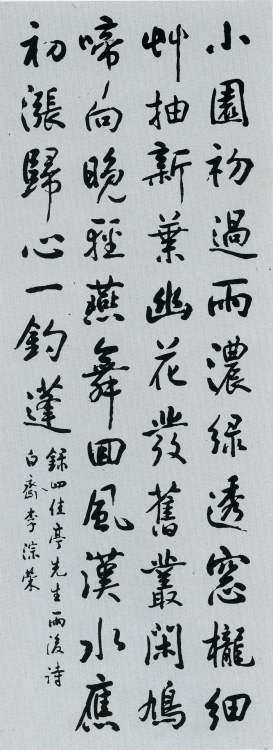 小園初過雨濃緑透窓櫳細
艸抽新葉幽花發舊叢閑鳩
啼向晚軽燕舞回風漢水應
初漲歸心一釣蓬
録四佳亭先生雨後詩
白齋李淙榮